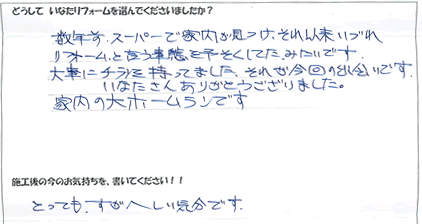 どうして いなたリフォームを選んでくださいましたか？
数年前、スーパーで家内が見つけ、それ以来いづれ
リフォームと言う事態を予そくしてたみたいです。
大事にチラシを持ってました。それが今回の出会いです。
いなたさんありがとうございました。
家内の大ホームランです
施工後の今のお気持ちを、書いてください！！
とっても、すがへしい気分です。